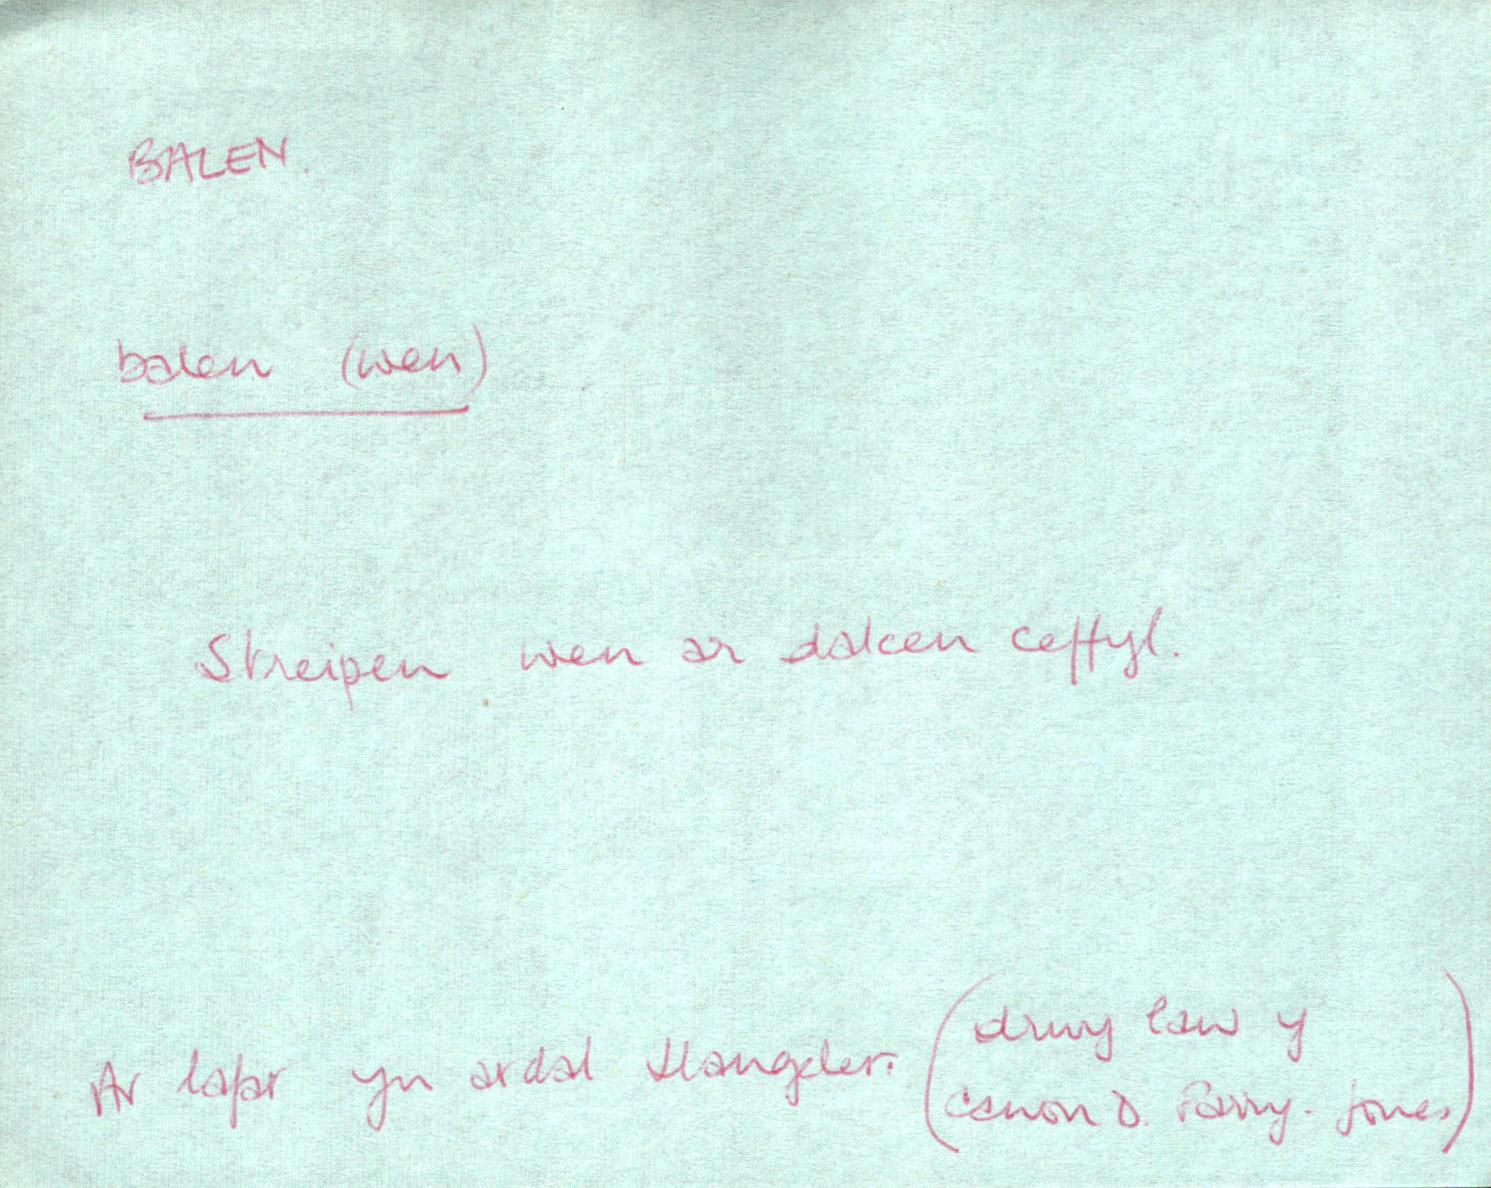 BALEN.
balen (wen)
Streipen wen ar dalcen ceffyl.
Ar lafar yn ardal Llangeler. (drwy law y
canon D. Parry-Jones)